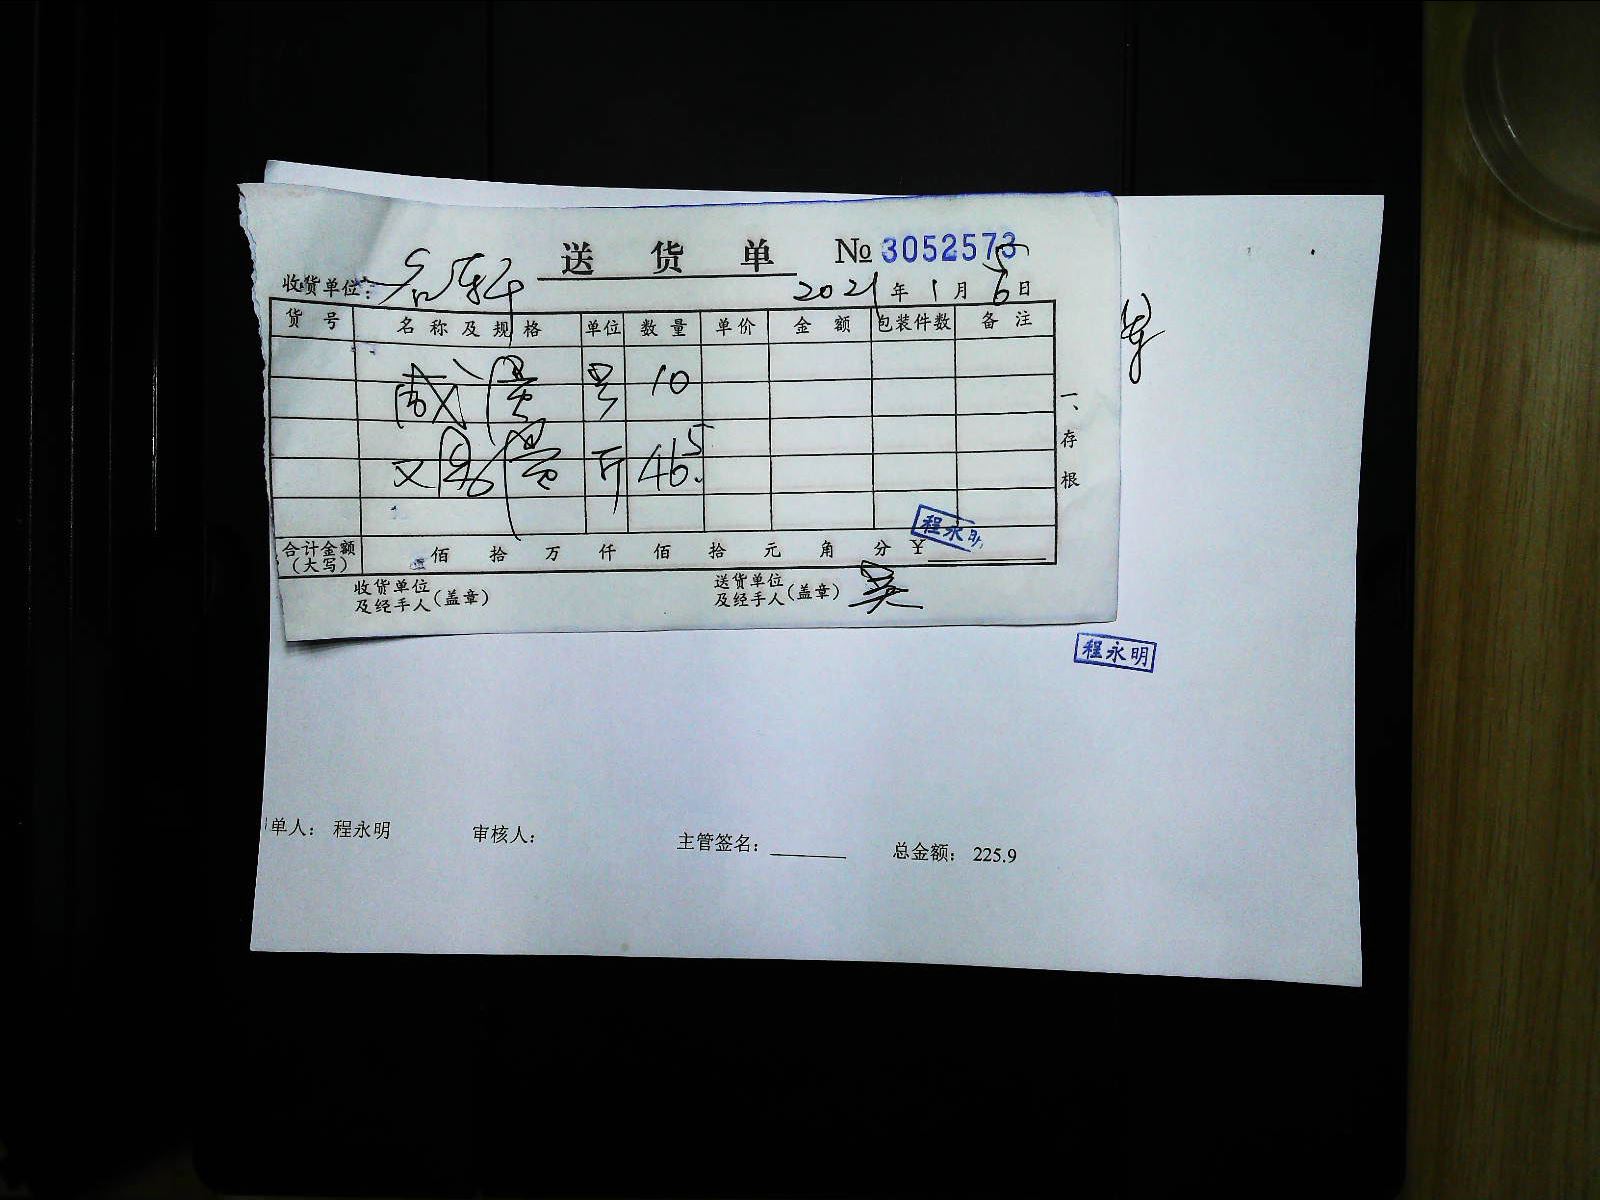 送货单 № 3052573
收货单位: 名轩 2021年1月6日
货号 名称及规格 单位 数量 单价 金额 包装件数 备注
咸蛋 10
又鸟蛋 斤 46.5
一、存根
程永明
合计金额(大写) 佰 拾 万 仟 佰 拾 元 角 分 ¥
收货单位及经手人(盖章) 送货单位及经手人(盖章) 吴
程永明
单人: 程永明 审核人: 主管签名: 总金额: 225.9